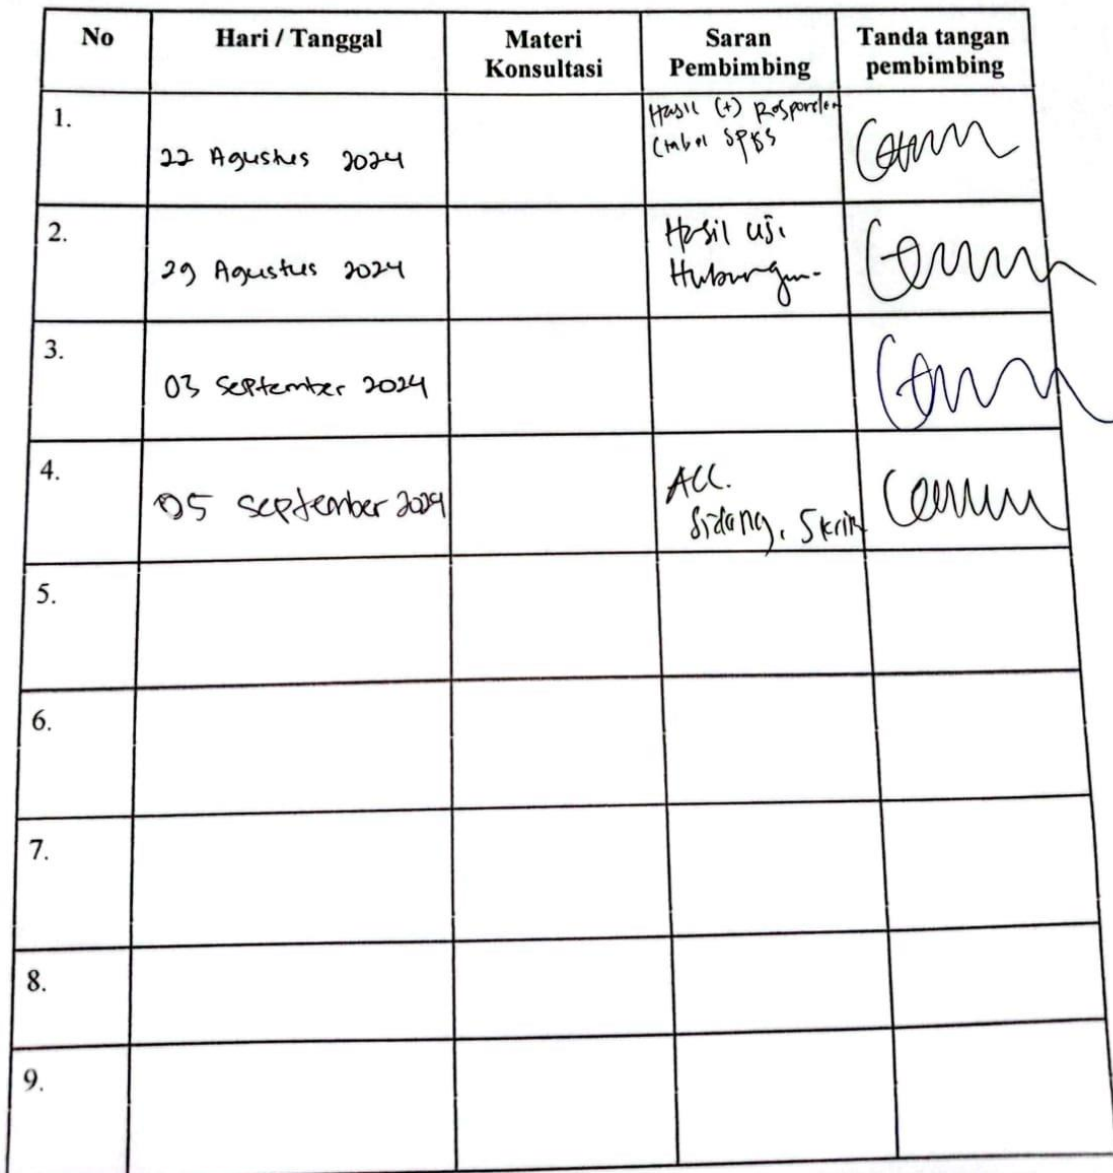 No Hari / Tanggal Materi Konsultasi Saran Pembimbing Tanda tangan pembimbing
1. 22 Agustus 2024 Hasil (+) Responden
2. 29 Agustus 2024 Hasil uji
Hubungan
3. 03 September 2024
4. 05 September 2024 ACC.
Sidang, Skrip
5.
6.
7.
8.
9.